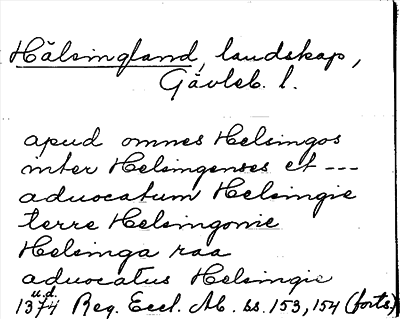 Hälsingland, landskap,
Gävleb. l.
apud omnes Helsingos
inter Helsingenses et ---
aduocatum Helsingie
terre Helsingonie
Helsinga raa
aduocatus Helsingie
u.d.
1374 Reg. Eccl. Ab. ss. 153, 154 (forts.)